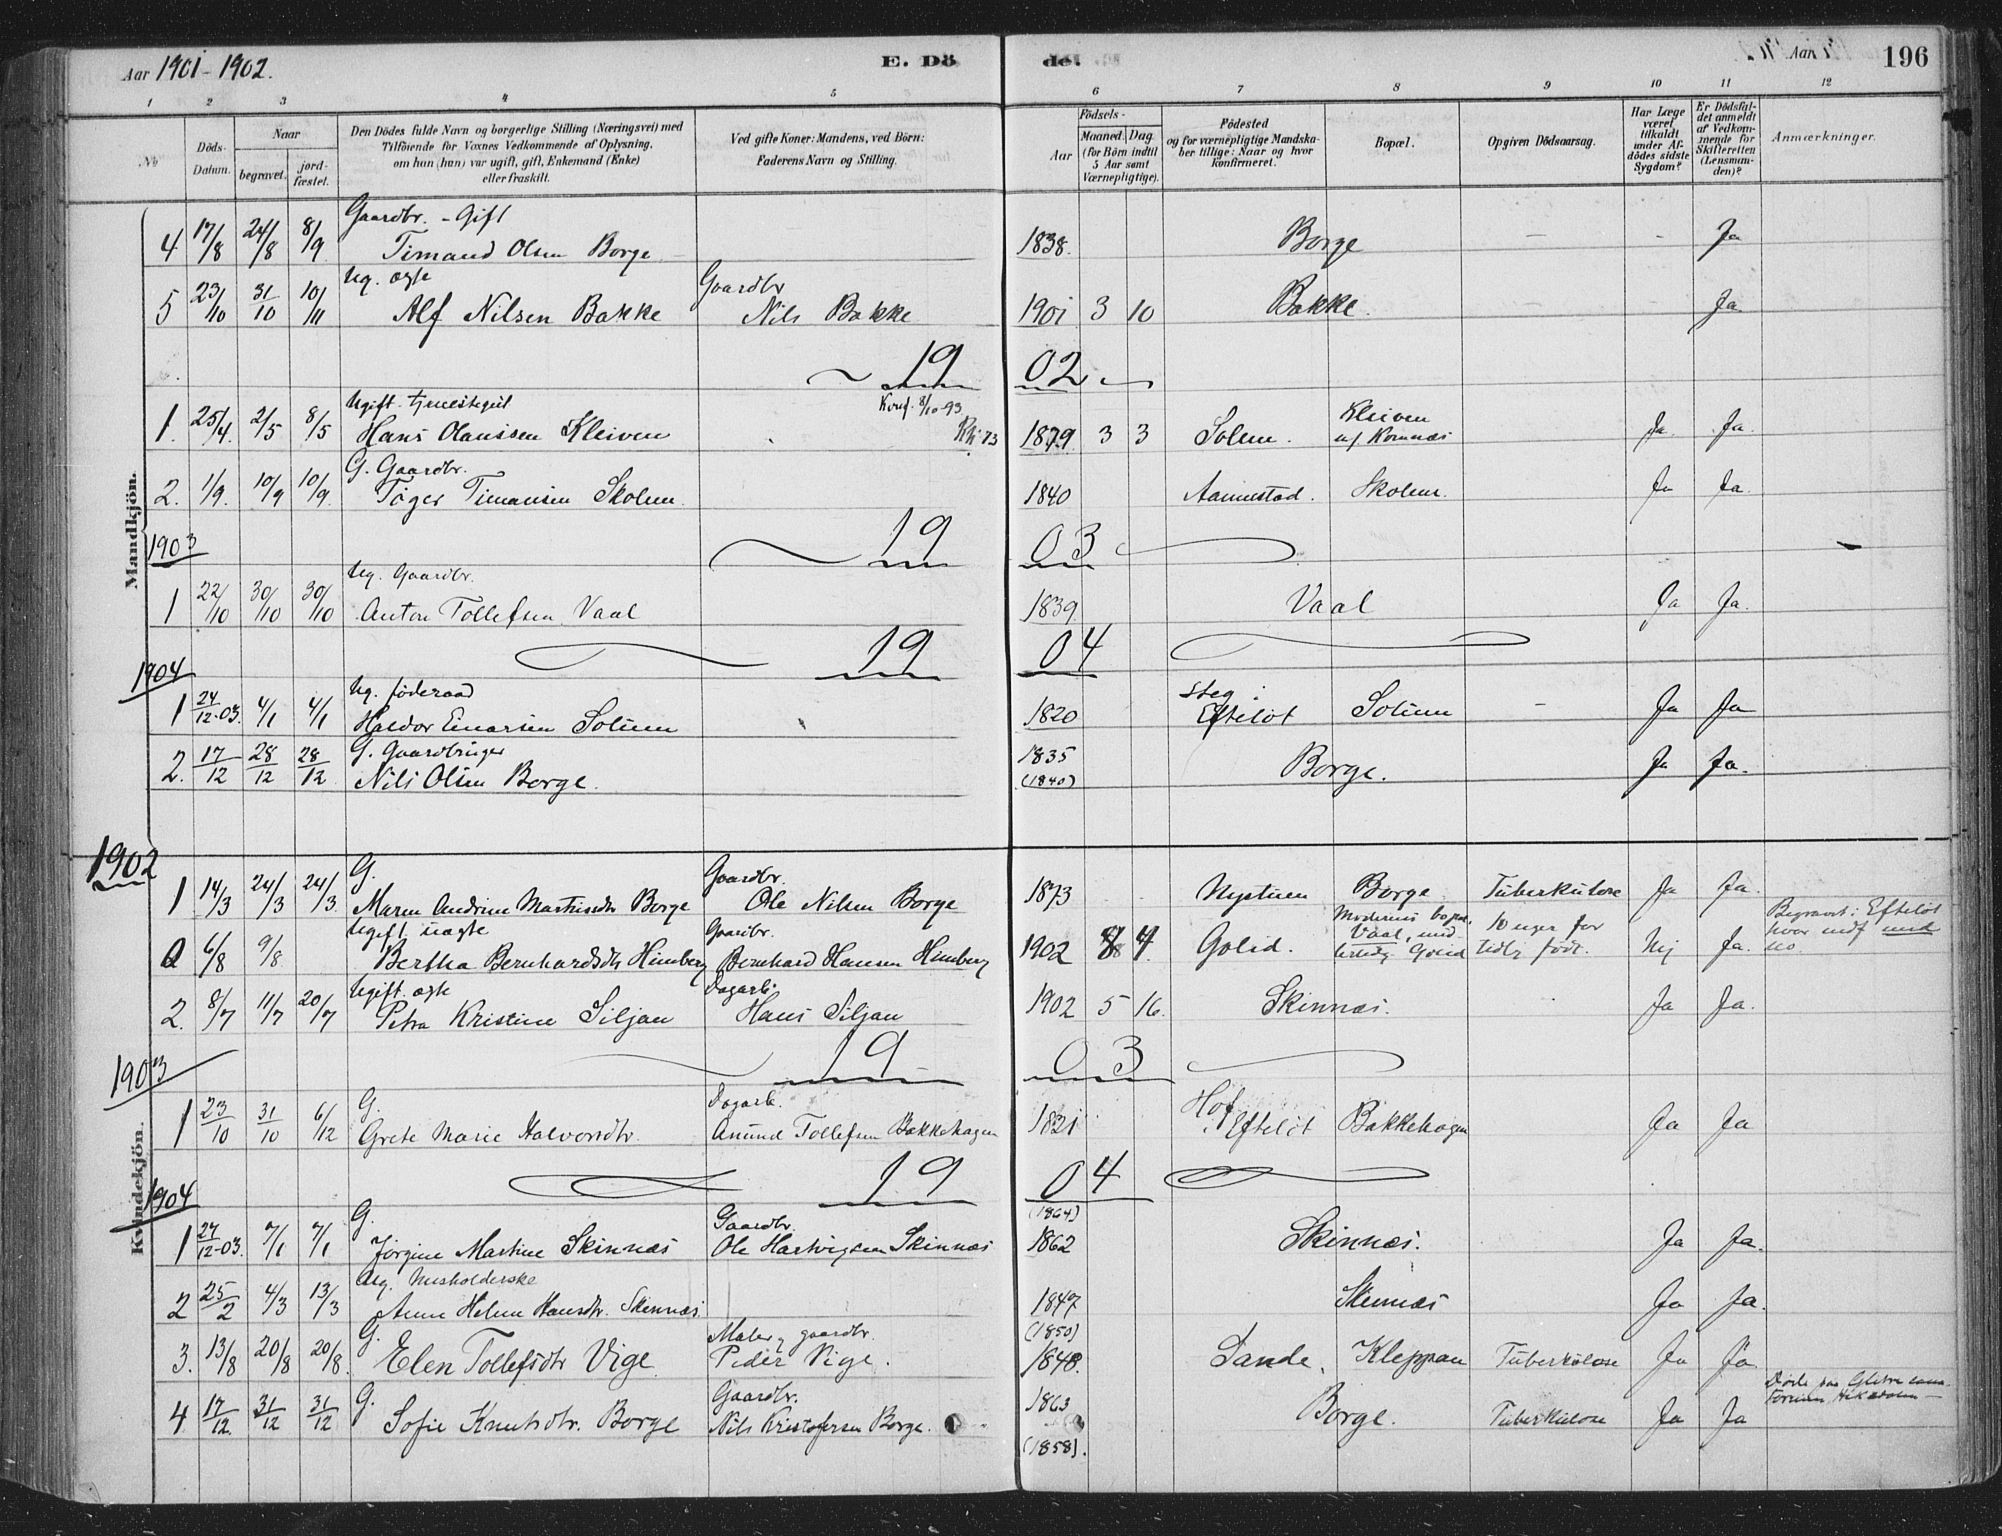 Aar 1901-1902.
E. Dö
de.
Aar
196
1 2 3 4 5 6 7 8 9 10 11 12
No
Döds-Datum.
Naar
begravet.
jord-fæstet.
Den Dödes fulde Navn og borgerlige Stilling (Næringsvei) med
Tilföiende for Voxnes Vedkommende af Oplysning,
om han (hun) var ugift, gift, Enkemand (Enke)
eller fraskilt.
Ved gifte Koner: Mandens, ved Börn:
Faderens Navn og Stilling.
Födsels-
Aar
Maaned. Dag.
(for Börn indtil
5 Aar samt
Værnepligtige).
Födested
og for værnepligtige Mandska-
ber tillige: Naar og hvor
konfirmeret.
Bopæl.
Opgiven Dödsaarsag.
Har Læge
været
tilkaldt
under Af-
dödes sidste
Sygdom?
Er Dödsfal-
det anmeldt
af Vedkom-
mende for
Skifteretten
(Lensman-
den)?
Anmærkninger.
Mandkjön.
Gaardbr. - Gift
4 17/8 24/8 8/9 Timand Olsen Borge 1838. Borge - - Ja
Ug. ægte Gaardbr
5 23/10 31/10 10/11 Alf Nilsen Bakke Nils Bakke 1901 3 10 Bakke. Ja
19 02
Ugift. Konf. 8/10-93. Kleiven
1. 25/4. 2/5 8/5 Hans Olanssen Kleiven 1879 3 3 Solem. Ja. Ja.
G. Gaardbr.
2. 1/9. 10/9 10/9 Töger Timansen Skolem. 1840 Aannestad. Skolem. Ja Ja.
1903 19 03
Ug. Gaardbr.
1 22/10 30/10 30/10 Anton Tollefsen Vaal 1839 Vaal Ja Ja.
1904 19 04
Ug. föderaad
1 24/12-03. 4/1 4/1 Haldor Einarsen Solum 1820 Efteløt Solum - Ja Ja
G. Gaardbruger
2. 17/12 28/12 28/12 Nils Olsen Borge. 1835 (1840) Borge. Ja Ja.
1902
Kvindekjön.
G. Gaardbr.
1 14/3 24/3 24/3 Maren Andrine Borge Ole Nilsen Borge 1873 Nystuen Borge Tuberkulose Ja Ja.
Ugift uægte Gaardbr. Moderens bopæl Vaal, 10 uger for Begravet i Efteløt
0 6/8 9/8 Bertha Bernhardsdtr Himberg Bernhard Hansen Himberg 1902 8 4. Golid. tidlig födt. Nej Ja. no.
Ugift. ægte Dagarb.
2. 8/7 11/7 20/7 Petra Kristine Siljan Hans Siljan 1902 5 16. Skinnæs. Ja Ja.
1903 19 03
G. Dagarb. Hof
1 23/10 31/10 6/12 Grete Marie Halvorsdtr. Anund Tollefsen Bakkehagen 1821 Efteløt Bakkehagen Ja Ja
1904 19 04
G. Gaardbr. (1864)
1 27/12-03. 7/1 7/1 Jørgine Martine Skinnæs Ole Hartvigsen Skinnæs 1862 Skinnæs. Ja Ja.
Ug. Husholderske
2 25/2 4/3 13/3 Anne Helene Hansdtr. Skinnæs 1847 Skinnæs Ja Ja.
G. Maler, gaardbr. (1850)
3. 13/8 20/8 20/8. Elen Tollefsdtr Vige Peder Vige. 1848. Sande. Kleppan Tuberkulose Ja Ja
G. Gaardbr. Döde paa
4 17/12. 31/12 31/12 Sofie Knutsdtr. Borge Nils Kristofersen Borge. 1863 Borge. Tuberkulose Ja Ja
(1858).